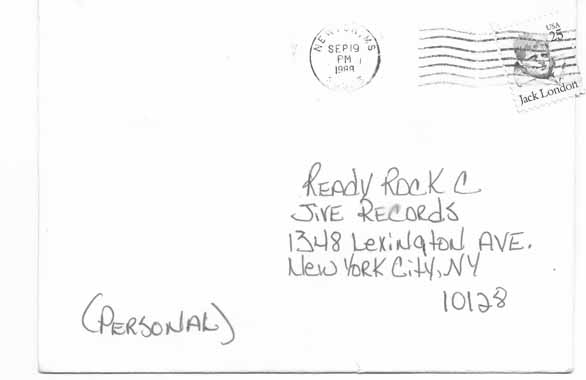 SEP 19
PM
1989
USA
25
Jack London
READY ROCK C
JIVE RECORDS
1348 Lexington AVE.
New YORK City, NY
10128
(PERSONAL)